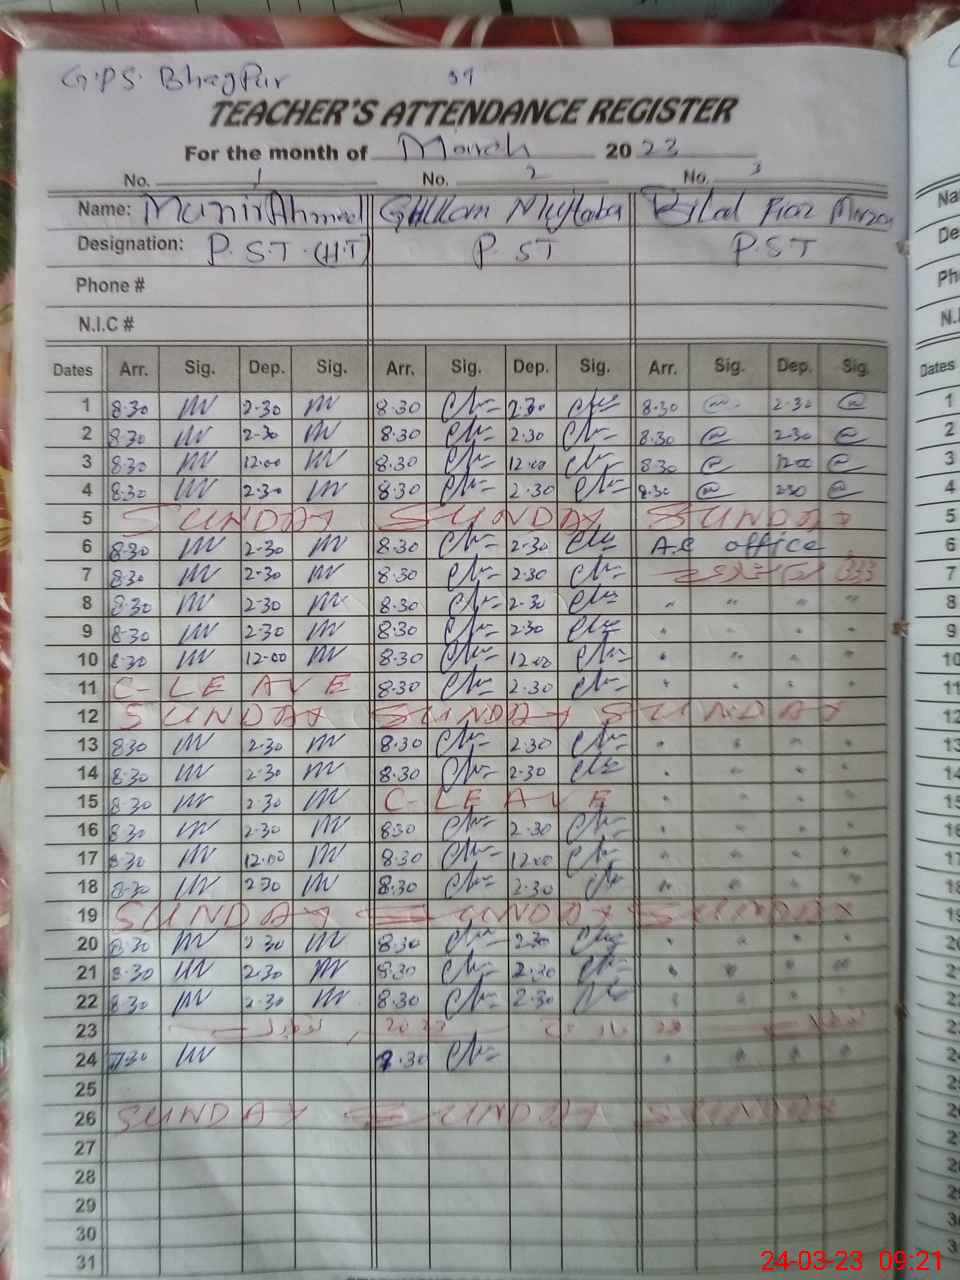 G.P.S. Bhagpur 37
TEACHER'S ATTENDANCE REGISTER
For the month of March 2023
No. 1 No. 2 No. 3
Name: Munir Ahmed Ghulam Mujtaba Bilal Riaz Mirza
Designation: P.S.T.(H.T) P.ST P.ST
Phone #
N.I.C #
Dates Arr. Sig. Dep. Sig. Arr. Sig. Dep. Sig. Arr. Sig. Dep. Sig.
1 8.30 2.30 8.30 2.30 8.30 2.30
2 8.30 2.30 8.30 2.30 8.30 2.30
3 8.30 12.00 8.30 12.00 8.30 12.00
4 8.30 2.30 8.30 2.30 8.30 2.30
5 SUNDAY SUNDAY SUNDAY
6 8.30 2.30 8.30 2.30 A.C office
7 8.30 2.30 8.30 2.30
8 8.30 2.30 8.30 2.30 " " " "
9 8.30 2.30 8.30 2.30 " " " "
10 8.30 12.00 8.30 12.00 " " " "
11 C-LEAVE 8.30 2.30 " " " "
12 SUNDAY SUNDAY SUNDAY
13 8.30 2.30 8.30 2.30 " " " "
14 8.30 2.30 8.30 2.30 " " " "
15 8.30 2.30 C-LEAVE " " " "
16 8.30 2.30 8.30 2.30 " " " "
17 8.30 12.00 8.30 12.00 " " " "
18 8.30 2.30 8.30 2.30 " " " "
19 SUNDAY SUNDAY SUNDAY
20 8.30 2.30 8.30 2.30 " " " "
21 8.30 2.30 8.30 2.30 " " " "
22 8.30 2.30 8.30 2.30 " " " "
23 2023 مارچ 23
24 7.30 7.30 " " " "
25
26 SUNDAY SUNDAY SUNDAY
27
28
29
30
31
24-03-23 09:21